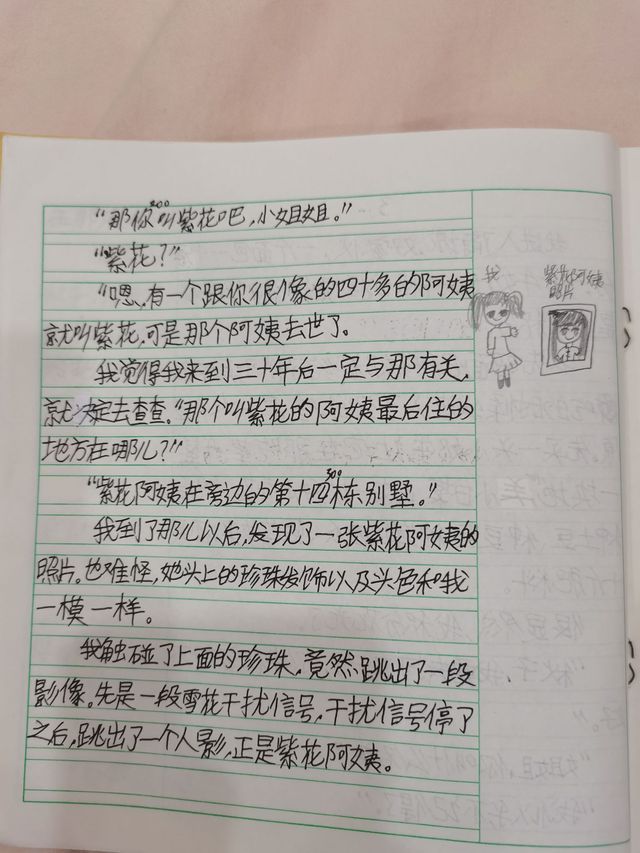 “那你叫紫花吧,小姐姐。”
200
“紫花?”
“嗯,有一个跟你很像的四十多的阿姨
就叫紫花,可是那个阿姨去世了。
我觉得我来到三十年后一定与那有关,
就决定去查查。“那个叫紫花的阿姨最后住的
地方在哪儿?”
“紫花阿姨在旁边的第十四栋别墅。”
300
我到了那儿以后,发现了一张紫花阿姨的
照片。也难怪,她头上的珍珠发饰以及头色和我
一模一样。
我触碰了上面的珍珠,竟然跳出了一段
影像。先是一段雪花干扰信号,干扰信号停了
之后,跳出了一个人影,正是紫花阿姨。
我
紫花阿姨
照片